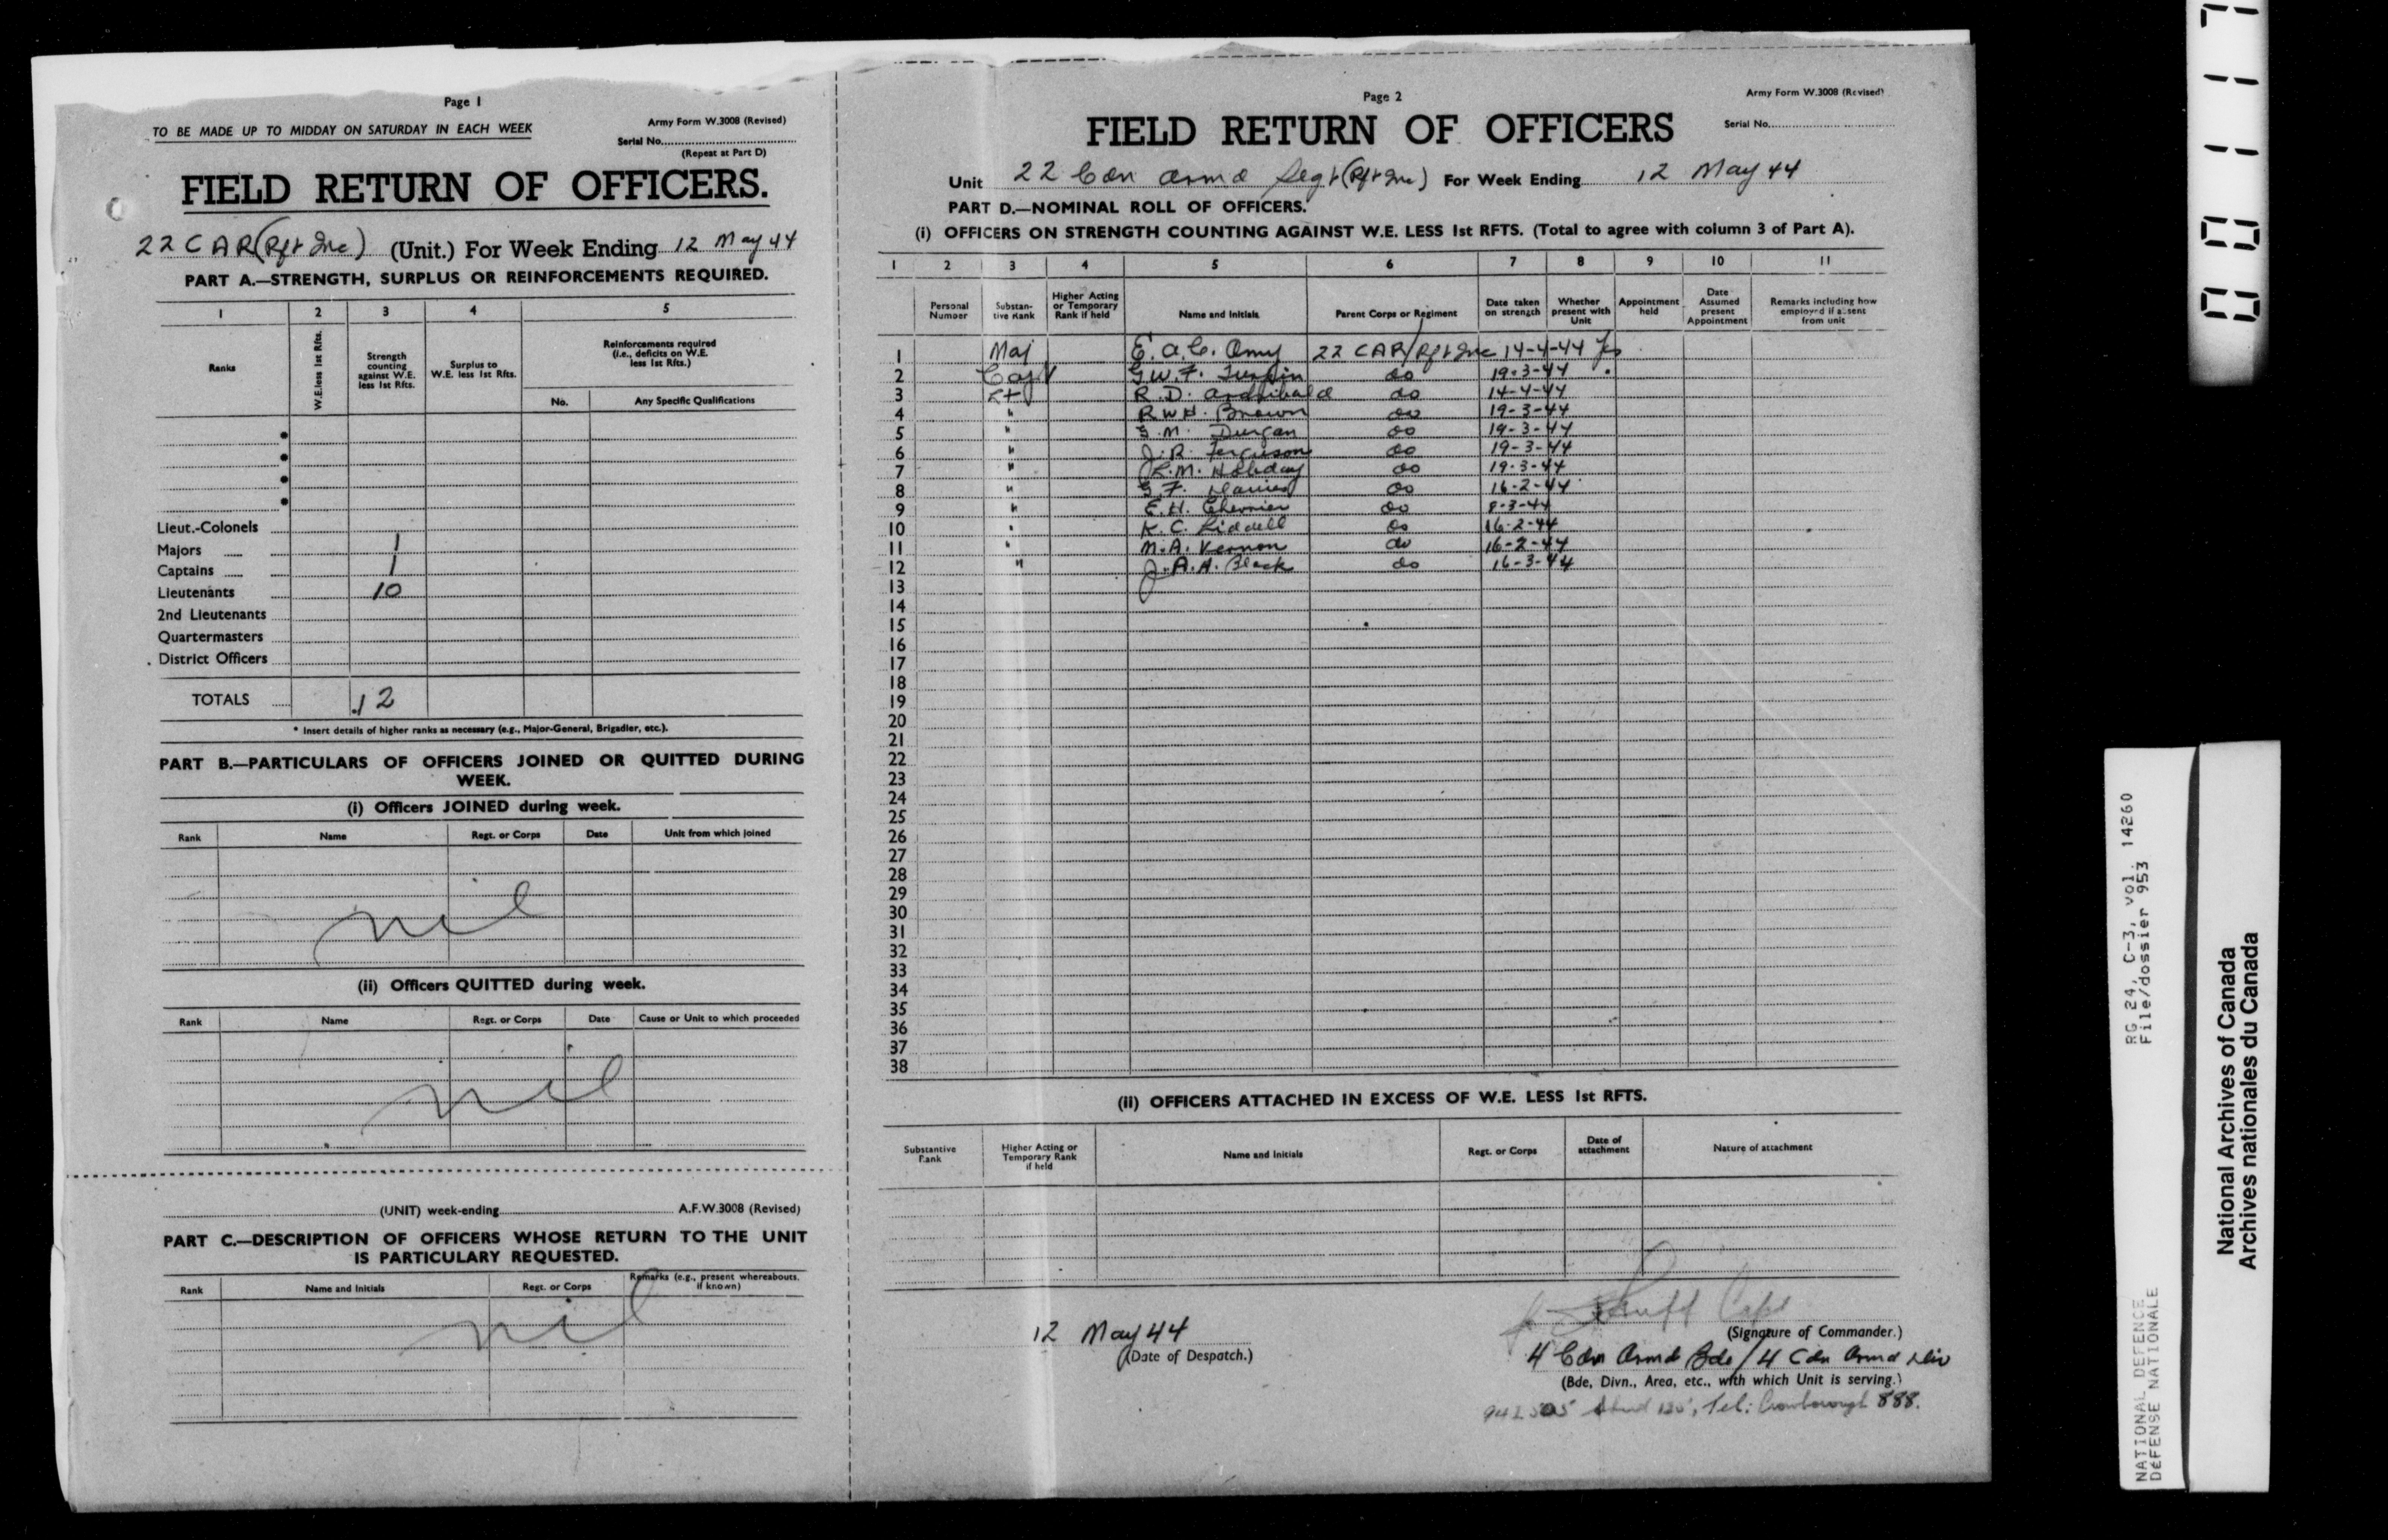 Page 1
TO BE MADE UP TO MIDDAY ON SATURDAY IN EACH WEEK
Army Form W.3008 (Revised)
Serial No.
(Repeat at Part D)
FIELD RETURN OF OFFICERS.
22 C A R (Rft Inc) (Unit.) For Week Ending 12 May 44
PART A.—STRENGTH, SURPLUS OR REINFORCEMENTS REQUIRED.
1 2 3 4 5
Ranks
W.E. less 1st Rfts.
Strength counting against W.E. less 1st Rfts.
Surplus to W.E. less 1st Rfts.
Reinforcements required (i.e., deficits on W.E. less 1st Rfts.)
No. Any Specific Qualifications
Lieut.-Colonels
Majors 1
Captains 1
Lieutenants 10
2nd Lieutenants
Quartermasters
District Officers
TOTALS 12
* Insert details of higher ranks as necessary (e.g., Major-General, Brigadier, etc.).
PART B.—PARTICULARS OF OFFICERS JOINED OR QUITTED DURING
WEEK.
(i) Officers JOINED during week.
Rank Name Regt. or Corps Date Unit from which joined
nil
(ii) Officers QUITTED during week.
Rank Name Regt. or Corps Date Cause or Unit to which proceeded
nil
(UNIT) week-ending A.F.W.3008 (Revised)
PART C.—DESCRIPTION OF OFFICERS WHOSE RETURN TO THE UNIT
IS PARTICULARY REQUESTED.
Rank Name and Initials Regt. or Corps Remarks (e.g., present whereabouts, if known)
nil
Page 2
Army Form W.3008 (Revised)
FIELD RETURN OF OFFICERS
Serial No.
Unit 22 Cdn Armd Regt (Rft Inc) For Week Ending 12 May 44
PART D.—NOMINAL ROLL OF OFFICERS.
(i) OFFICERS ON STRENGTH COUNTING AGAINST W.E. LESS 1st RFTS. (Total to agree with column 3 of Part A).
1 2 3 4 5 6 7 8 9 10 11
Personal Number
Substantive Rank
Higher Acting or Temporary Rank if held
Name and Initials
Parent Corps or Regiment
Date taken on strength
Whether present with Unit
Appointment held
Date Assumed present Appointment
Remarks including how employed if absent from unit
1 Maj E. A. C. Amy 22 CAR/Rft Inc 14-4-44 Yes
2 Capt G.W.F. do 19-3-44 "
3 Lt R. D. Archibald do 14-4-44
4 " R W H. Brown do 19-3-44
5 " G. M. Durgan do 19-3-44
6 " J. R. Ferguson do 19-3-44
7 " L. M. Holliday do 19-3-44
8 " G. F. do 16-2-44
9 " E. H. Chevrier do 8-3-44
10 " K. C. Liddell do 16-2-44
11 " M. A. Vernon do 16-2-44
12 " J. A. A. Black do 16-3-44
13
14
15
16
17
18
19
20
21
22
23
24
25
26
27
28
29
30
31
32
33
34
35
36
37
38
(ii) OFFICERS ATTACHED IN EXCESS OF W.E. LESS 1st RFTS.
Substantive Rank
Higher Acting or Temporary Rank if held
Name and Initials
Regt. or Corps
Date of attachment
Nature of attachment
Capt
12 May 44
(Signature of Commander.)
(Date of Despatch.)
4 Cdn Armd Bde / 4 Cdn Armd Div
(Bde, Divn., Area, etc., with which Unit is serving.)
Tel: Crowborough 888.
00117
RG 24, C-3, vol. 14260
File/dossier 953
NATIONAL DEFENCE
DÉFENSE NATIONALE
National Archives of Canada
Archives nationales du Canada